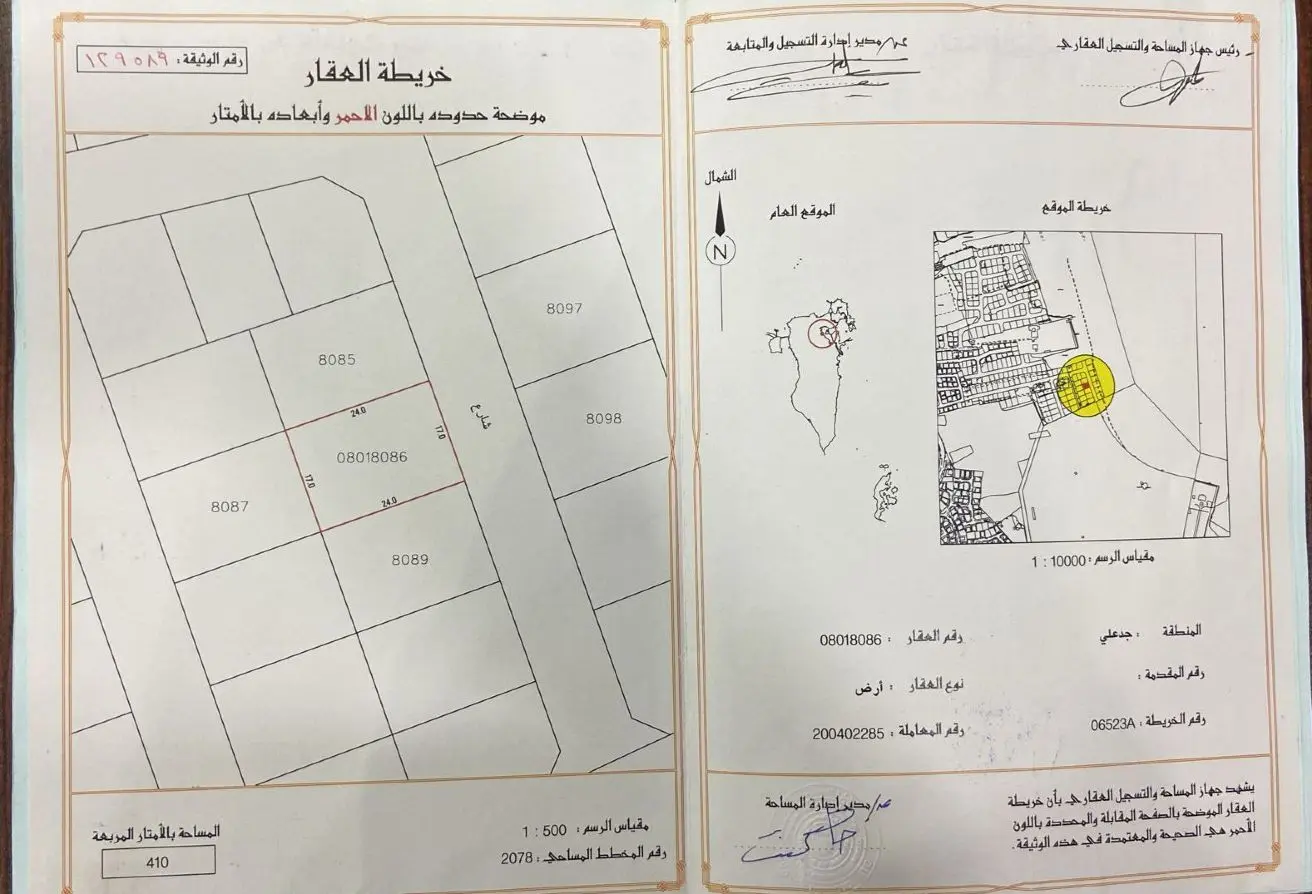 رقم الوثيقة:
خريطة العقار
موضحة حدوده باللون الاحمر وأبعاده بالأمتار
8097
8085
24.0
17.0
شارع
8098
08018086
17.0
24.0
8087
8089
مقياس الرسم: 500 : 1
المساحة بالأمتار المربعة
رقم المخطط المساحي: 2078
410
رئيس جهاز المساحة والتسجيل العقاري
عن/مدير إدارة التسجيل والمتابعة
الشمال
N
الموقع العام
خريطة الموقع
مقياس الرسم: 10000 : 1
المنطقة : جدعلي
رقم العقار : 08018086
رقم المقدمة :
نوع العقار : أرض
رقم الخريطة : 06523A
رقم المعاملة : 200402285
يشهد جهاز المساحة والتسجيل العقاري بأن خريطة
العقار الموضحة بالصفحة المقابلة والمحددة باللون
الأحمر هي الصحيحة والمعتمدة في هذه الوثيقة.
عن/مدير إدارة المساحة